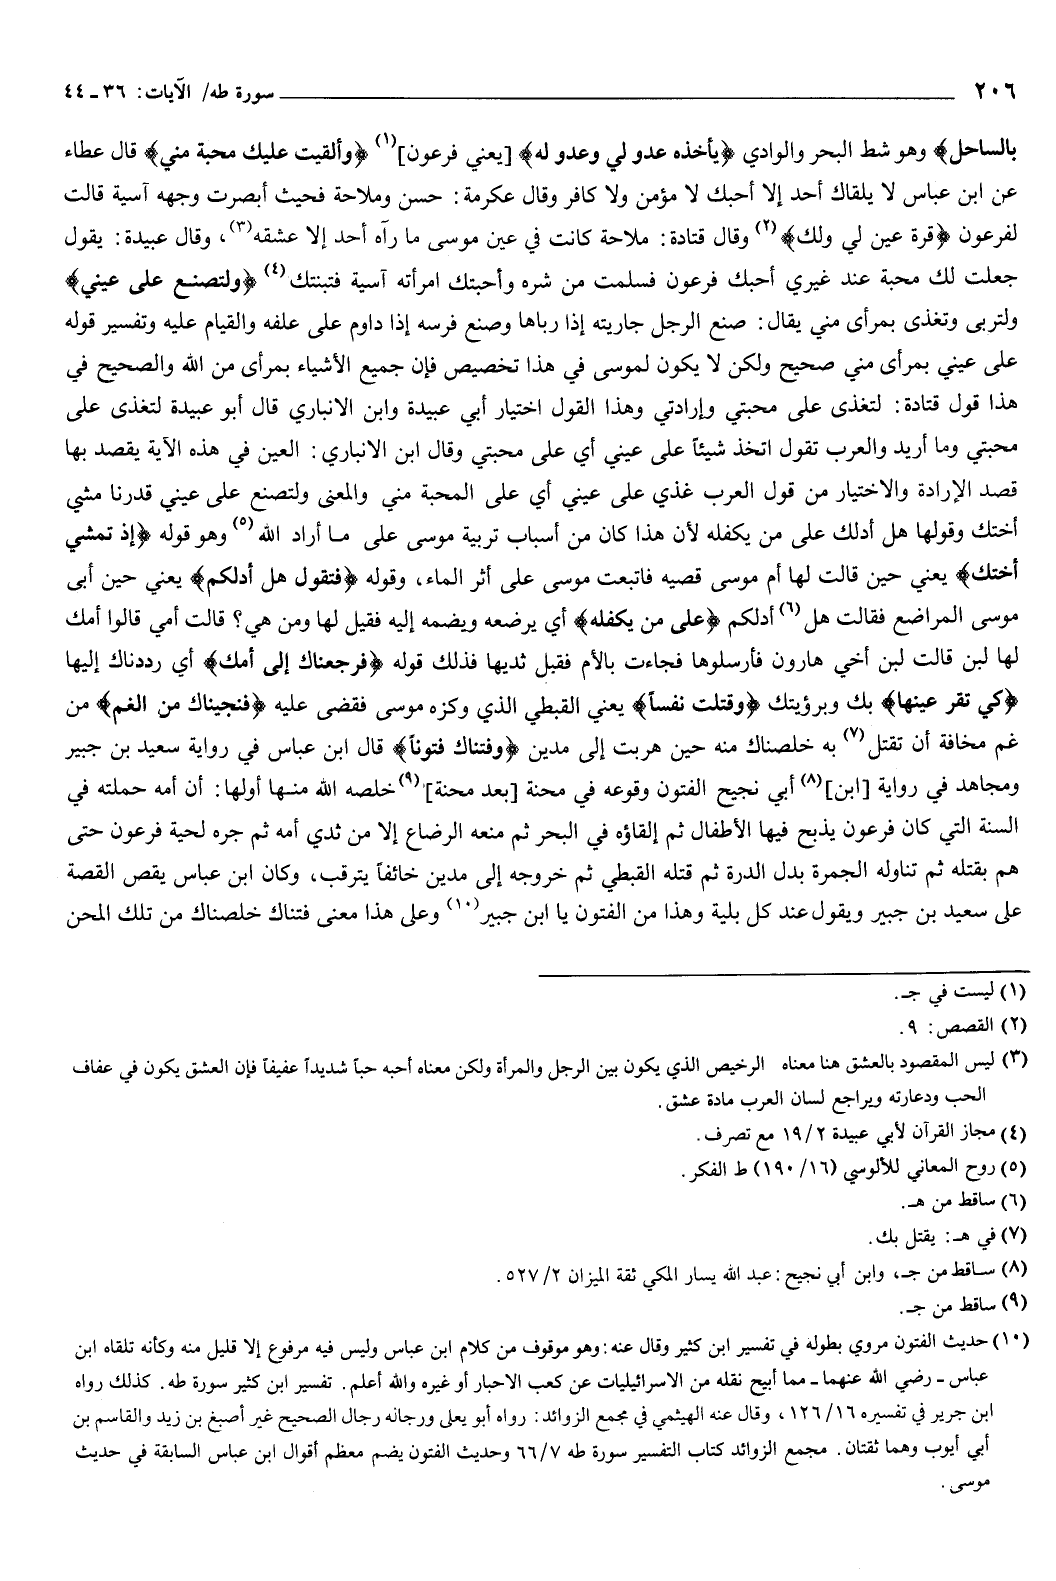 ٢٠٦ سورة طه/ الآيات: ٣٦ ـ ٤٤
بالساحل﴾ وهو شط البحر والوادي ﴿يأخذه عدو لي وعدو له﴾ [يعني فرعون](١) ﴿وألقيت عليك محبة مني﴾ قال عطاء
عن ابن عباس لا يلقاك أحد إلا أحبك لا مؤمن ولا كافر وقال عكرمة: حسن وملاحة فحيث أبصرت وجهه آسية قالت
لفرعون ﴿قرة عين لي ولك﴾(٢) وقال قتادة: ملاحة كانت في عين موسى ما رآه أحد إلا عشقه(٣)، وقال عبيدة: يقول
جعلت لك محبة عند غيري أحبك فرعون فسلمت من شره وأحبتك امرأته آسية فتبنتك(٤) ﴿ولتصنع على عيني﴾
ولتربى وتغذى بمرأى مني يقال: صنع الرجل جاريته إذا رباها وصنع فرسه إذا داوم على علفه والقيام عليه وتفسير قوله
على عيني بمرأى مني صحيح ولكن لا يكون لموسى في هذا تخصيص فإن جميع الأشياء بمرأى من الله والصحيح في
هذا قول قتادة: لتغذى على محبتي وإرادتي وهذا القول اختيار أبي عبيدة وابن الانباري قال أبو عبيدة لتغذى على
محبتي وما أريد والعرب تقول اتخذ شيئاً على عيني أي على محبتي وقال ابن الانباري: العين في هذه الآية يقصد بها
قصد الإرادة والاختيار من قول العرب غذي على عيني أي على المحبة مني والمعنى ولتصنع على عيني قدرنا مشي
أختك وقولها هل أدلك على من يكفله لأن هذا كان من أسباب تربية موسى على ما أراد الله(٥) وهو قوله ﴿إذ تمشي
أختك﴾ يعني حين قالت لها أم موسى قصيه فاتبعت موسى على أثر الماء، وقوله ﴿فتقول هل أدلكم﴾ يعني حين أبى
موسى المراضع فقالت هل(٦) أدلكم ﴿على من يكفله﴾ أي يرضعه ويضمه إليه فقيل لها ومن هي؟ قالت أمي قالوا أمك
لها لبن قالت لبن أخي هارون فأرسلوها فجاءت بالأم فقبل ثديها فذلك قوله ﴿فرجعناك إلى أمك﴾ أي رددناك إليها
﴿كي تقر عينها﴾ بك وبرؤيتك ﴿وقتلت نفساً﴾ يعني القبطي الذي وكزه موسى فقضى عليه ﴿فنجيناك من الغم﴾ من
غم مخافة أن تقتل(٧) به خلصناك منه حين هربت إلى مدين ﴿وفتناك فتوناً﴾ قال ابن عباس في رواية سعيد بن جبير
ومجاهد في رواية [ابن](٨) أبي نجيح الفتون وقوعه في محنة [بعد محنة](٩) خلصه الله منها أولها: أن أمه حملته في
السنة التي كان فرعون يذبح فيها الأطفال ثم إلقاؤه في البحر ثم منعه الرضاع إلا من ثدي أمه ثم جره لحية فرعون حتى
هم بقتله ثم تناوله الجمرة بدل الدرة ثم قتله القبطي ثم خروجه إلى مدين خائفاً يترقب، وكان ابن عباس يقص القصة
على سعيد بن جبير ويقول عند كل بلية وهذا من الفتون يا ابن جبير(١٠) وعلى هذا معنى فتناك خلصناك من تلك المحن
(١) ليست في جـ.
(٢) القصص: ٩.
(٣) ليس المقصود بالعشق هنا معناه الرخيص الذي يكون بين الرجل والمرأة ولكن معناه أحبه حباً شديداً عفيفاً فإن العشق يكون في عفاف
الحب ودعارته ويراجع لسان العرب مادة عشق.
(٤) مجاز القرآن لأبي عبيدة ١٩/٢ مع تصرف.
(٥) روح المعاني للألوسي (١٩٠/١٦) ط الفكر.
(٦) ساقط من هـ.
(٧) في هـ: يقتل بك.
(٨) ساقط من جـ، وابن أبي نجيح: عبد الله يسار المكي ثقة الميزان ٥٢٧/٢.
(٩) ساقط من جـ.
(١٠) حديث الفتون مروي بطوله في تفسير ابن كثير وقال عنه: وهو موقوف من كلام ابن عباس وليس فيه مرفوع إلا قليل منه وكأنه تلقاه ابن
عباس ـ رضي الله عنهما ـ مما أبيح نقله من الاسرائيليات عن كعب الاحبار أو غيره والله أعلم. تفسير ابن كثير سورة طه. كذلك رواه
ابن جرير في تفسيره ١٢٦/١٦، وقال عنه الهيثمي في مجمع الزوائد: رواه أبو يعلى ورجاله رجال الصحيح غير أصبغ بن زيد والقاسم بن
أبي أيوب وهما ثقتان. مجمع الزوائد كتاب التفسير سورة طه ٦٦/٧ وحديث الفتون يضم معظم أقوال ابن عباس السابقة في حديث
موسى.